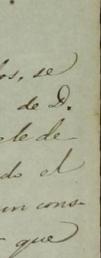 os, se
de D.
ele de
do el
un cons-
que